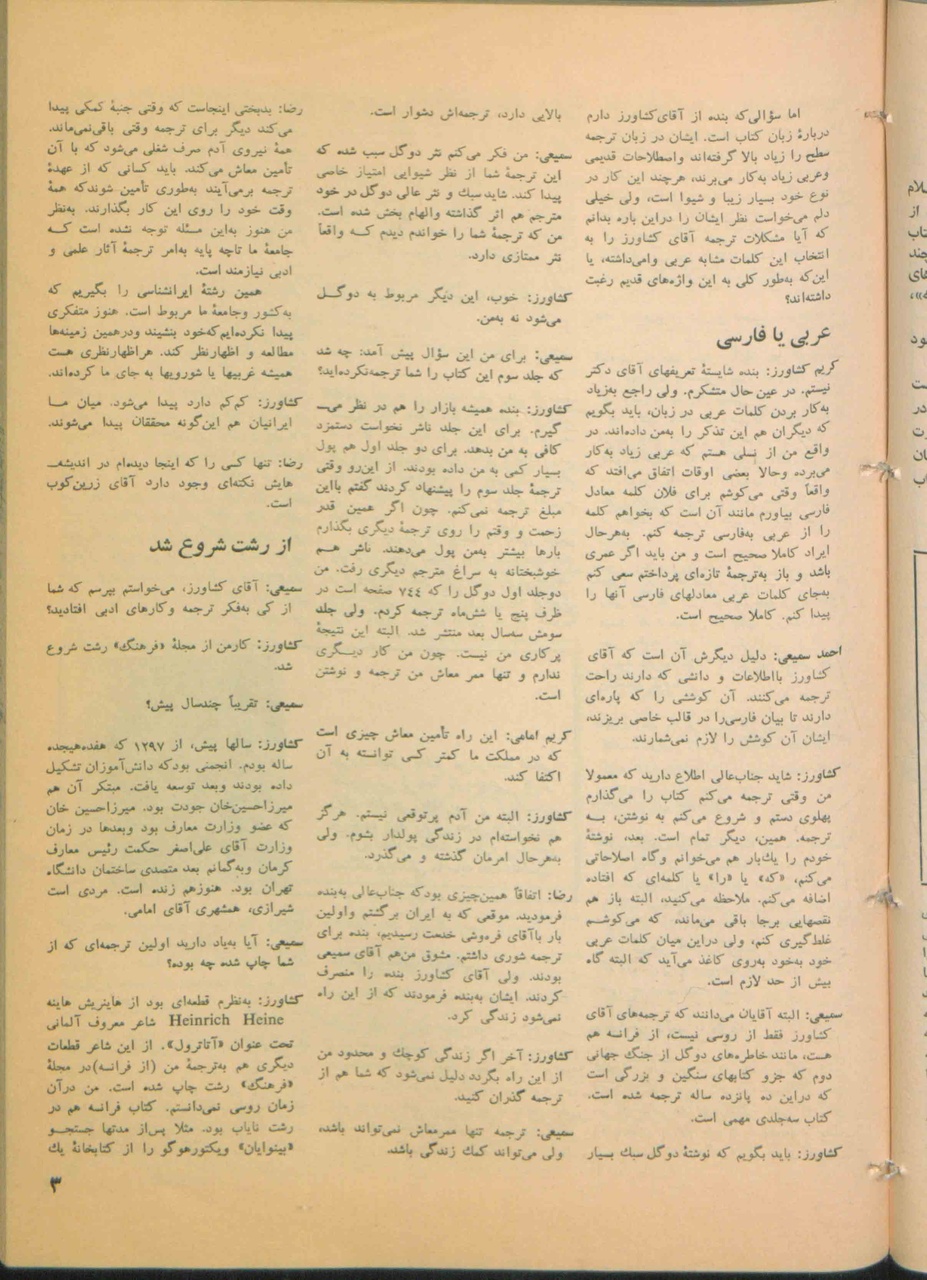 اما سؤالی‌که بنده از آقای‌کشاورز دارم
دربارهٔ زبان کتاب است. ایشان در زبان ترجمه
سطح را زیاد بالا گرفته‌اند واصطلاحات قدیمی
وعربی زیاد به‌کار می‌برند، هرچند این کار در
نوع خود بسیار زیبا و شیوا است، ولی خیلی
دلم می‌خواست نظر ایشان را دراین باره بدانم
که آیا مشکلات ترجمه آقای کشاورز را به
انتخاب این کلمات مشابه عربی وامی‌داشته، یا
این‌که به‌طور کلی به این واژه‌های قدیم رغبت
داشته‌اند؟
عربی یا فارسی
کریم کشاورز: بنده شایستهٔ تعریفهای آقای دکتر
نیستم. در عین حال متشکرم. ولی راجع به‌زیاد
به‌کار بردن کلمات عربی در زبان، باید بگویم
که دیگران هم این تذکر را به‌من داده‌اند. در
واقع من از نسلی هستم که عربی زیاد به‌کار
می‌برده وحالا بعضی اوقات اتفاق می‌افتد که
واقعاً وقتی می‌کوشم برای فلان کلمه معادل
فارسی بیاورم مانند آن است که بخواهم کلمه
را از عربی به‌فارسی ترجمه کنم. به‌هرحال
ایراد کاملا صحیح است و من باید اگر عمری
باشد و باز به‌ترجمهٔ تازه‌ای پرداختم سعی کنم
به‌جای کلمات عربی معادلهای فارسی آنها را
پیدا کنم. کاملا صحیح است.
احمد سمیعی: دلیل دیگرش آن است که آقای
کشاورز بااطلاعات و دانشی که دارند راحت
ترجمه می‌کنند. آن کوششی را که پاره‌ای
دارند تا بیان فارسی‌را در قالب خاصی بریزند،
ایشان آن کوشش را لازم نمی‌شمارند.
کشاورز: شاید جناب‌عالی اطلاع دارید که معمولا
من وقتی ترجمه می‌کنم کتاب را می‌گذارم
پهلوی دستم و شروع می‌کنم به نوشتن، بــه
ترجمه. همین، دیگر تمام است. بعد، نوشتهٔ
خودم را یك‌بار هم می‌خوانم وگاه اصلاحاتی
می‌کنم، «که» یا «را» یا کلمه‌ای که افتاده
اضافه می‌کنم. ملاحظه می‌کنید، البته باز هم
نقصهایی برجا باقی می‌ماند، که می‌کوشــم
غلط‌گیری کنم، ولی دراین میان کلمات عربی
خود به‌خود به‌روی کاغذ می‌آید که البته گاه
بیش از حد لازم است.
سمیعی: البته آقایان می‌دانند که ترجمه‌های آقای
کشاورز فقط از روسی نیست، از فرانسه هم
هست، مانند خاطره‌های دوگل از جنگ جهانی
دوم که جزو کتابهای سنگین و بزرگی است
که دراین ده پانزده ساله ترجمه شده است.
کتاب سه‌جلدی مهمی است.
کشاورز: باید بگویم که نوشتهٔ دوگل سبك بسیار
بالایی دارد، ترجمه‌اش دشوار است.
سمیعی: من فکر می‌کنم نثر دوگل سبب شده که
این ترجمهٔ شما از نظر شیوایی امتیاز خاصی
پیدا کند. شاید سبك و نثر عالی دوگل در خود
مترجم هم اثر گذاشته والهام بخش شده است.
من که ترجمهٔ شما را خواندم دیدم کــه واقعاً
نثر ممتازی دارد.
کشاورز: خوب، این دیگر مربوط به دوگــل
می‌شود نه به‌من.
سمیعی: برای من این سؤال پیش آمد: چه شد
که جلد سوم این کتاب را شما ترجمه‌نکرده‌اید؟
کشاورز: بنده همیشه بازار را هم در نظر می‌ــ
گیرم. برای این جلد ناشر نخواست دستمزد
کافی به من بدهد. برای دو جلد اول هم پول
بسیار کمی به من داده بودند. از این‌رو وقتی
ترجمهٔ جلد سوم را پیشنهاد کردند گفتم بااین
مبلغ ترجمه نمی‌کنم. چون اگر همین قدر
زحمت و وقتم را روی ترجمهٔ دیگری بگذارم
بارها بیشتر به‌من پول می‌دهند. ناشر هــم
خوشبختانه به سراغ مترجم دیگری رفت. من
دوجلد اول دوگل را که ۷٤٤ صفحه است در
ظرف پنج یا شش‌ماه ترجمه کردم. ولی جلد
سومش سه‌سال بعد منتشر شد. البته این نتیجهٔ
پرکاری من نیست. چون من کار دیــگری
ندارم و تنها ممر معاش من ترجمه و نوشتن
است.
کریم امامی: این راه تأمین معاش چیزی است
که در مملکت ما کمتر کسی توانسته به آن
اکتفا کند.
کشاورز: البته من آدم پرتوقعی نیستم. هرگز
هم نخواسته‌ام در زندگی پولدار بشوم. ولی
به‌هرحال امرمان گذشته و می‌گذرد.
رضا: اتفاقاً همین‌چیزی بودکه جناب‌عالی به‌بنده
فرمودید. موقعی که به ایران برگشتم واولین
بار باآقای فره‌وشی خدمت رسیدیم، بنده برای
ترجمه شوری داشتم. مشوق من‌هم آقای سمیعی
بودند. ولی آقای کشاورز بنده را منصرف
کردند. ایشان به‌بنده فرمودند که از این راه
نمی‌شود زندگی کرد.
کشاورز: آخر اگر زندگی کوچك و محدود من
از این راه بگردد دلیل نمی‌شود که شما هم از
ترجمه گذران کنید.
سمیعی: ترجمه تنها ممرمعاش نمی‌تواند باشد،
ولی می‌تواند کمك زندگی باشد.
رضا: بدبختی اینجاست که وقتی جنبهٔ کمکی پیدا
می‌کند دیگر برای ترجمه وقتی باقی‌نمی‌ماند.
همهٔ نیروی آدم صرف شغلی می‌شود که با آن
تأمین معاش می‌کند. باید کسانی که از عهدهٔ
ترجمه برمی‌آیند به‌طوری تأمین شوندکه همهٔ
وقت خود را روی این کار بگذارند. به‌نظر
من هنوز به‌این مسئله توجه نشده است کــه
جامعهٔ ما تاچه پایه به‌امر ترجمهٔ آثار علمی و
ادبی نیازمند است.
همین رشتهٔ ایرانشناسی را بگیریم که
به‌کشور وجامعهٔ ما مربوط است. هنوز متفکری
پیدا نکرده‌ایم‌که‌خود بنشیند ودرهمین زمینه‌ها
مطالعه و اظهارنظر کند. هراظهارنظری هست
همیشه غربیها یا شورویها به جای ما کرده‌اند.
کشاورز: کم‌کم دارد پیدا می‌شود. میان مــا
ایرانیان هم این‌گونه محققان پیدا می‌شوند.
رضا: تنها کسی را که اینجا دیده‌ام در اندیشه‌ــ
هایش نکته‌ای وجود دارد آقای زرین‌کوب
است.
از رشت شروع شد
سمیعی: آقای کشاورز، می‌خواستم بپرسم که شما
از کی به‌فکر ترجمه وکارهای ادبی افتادید؟
کشاورز: کارمن از مجلهٔ «فرهنگ» رشت شروع
شد.
سمیعی: تقریباً چندسال پیش؟
کشاورز: سالها پیش، از ۱۲۹۷ که هفده‌هیجده
ساله بودم. انجمنی بودکه دانش‌آموزان تشکیل
داده بودند وبعد توسعه یافت. مبتکر آن هم
میرزاحسین‌خان جودت بود. میرزاحسین خان
که عضو وزارت معارف بود وبعدها در زمان
وزارت آقای علی‌اصغر حکمت رئیس معارف
کرمان وبه‌گمانم بعد متصدی ساختمان دانشگاه
تهران بود. هنوزهم زنده است. مردی است
شیرازی، همشهری آقای امامی.
سمیعی: آیا به‌یاد دارید اولین ترجمه‌ای که از
شما چاپ شده چه بوده؟
کشاورز: به‌نظرم قطعه‌ای بود از هاینریش هاینه
Heinrich Heine شاعر معروف آلمانی
تحت عنوان «آتاترول». از این شاعر قطعات
دیگری هم به‌ترجمهٔ من (از فرانسه)در مجلهٔ
«فرهنگ» رشت چاپ شده است. من درآن
زمان روسی نمی‌دانستم. کتاب فرانسه هم در
رشت نایاب بود. مثلا پس‌از مدتها جستجــو
«بینوایان» ویکتورهوگو را از کتابخانهٔ یك
۳